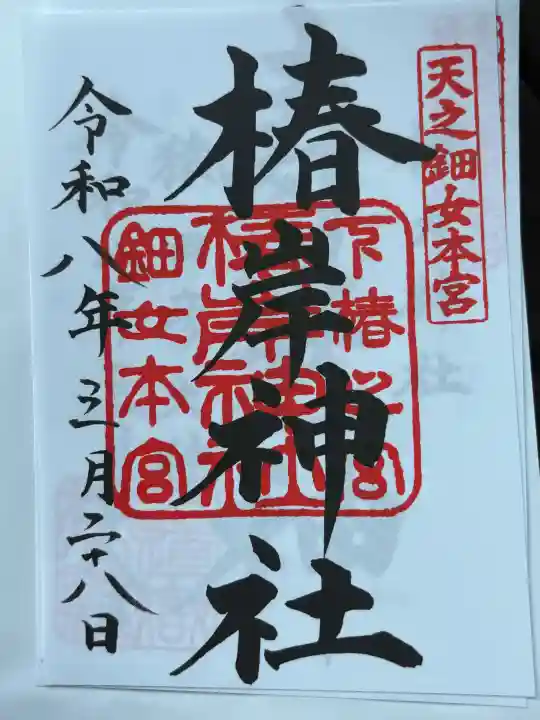 天之鈿女本宮
椿岸神社
鈿女本宮
令和八年三月二十八日